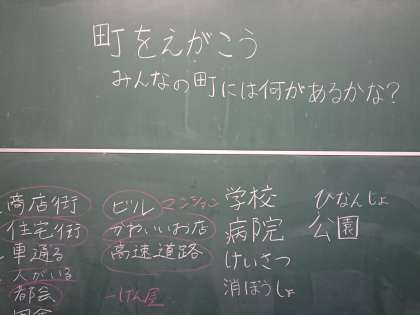 町をえがこう
みんなの町には何があるかな?
商店街
住宅街
車通る
人がいる
都会
ビル マンション
かわいいお店
高速道路
一げん屋
学校
病院
けいさつ
消ぼうしょ
ひなんじょ
公園